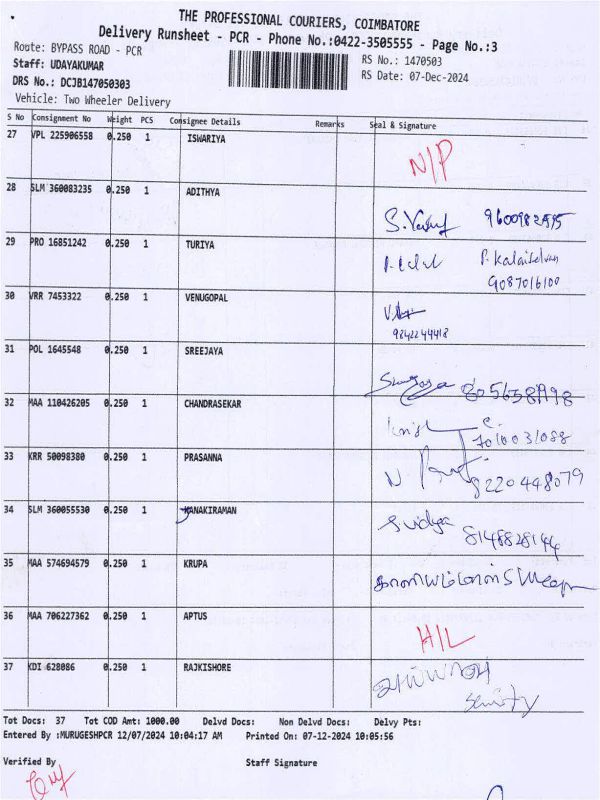 THE PROFESSIONAL COURIERS, COIMBATORE
Delivery Runsheet - PCR - Phone No.:0422-3505555 - Page No.:3
Route: BYPASS ROAD - PCR RS No.: 1470503
Staff: UDAYAKUMAR RS Date: 07-Dec-2024
DRS No.: DCJB147050303
Vehicle: Two Wheeler Delivery
S No Consignment No Weight PCS Consignee Details Remarks Seal & Signature
27 VPL 225906558 0.250 1 ISWARIYA
N/P
28 SLM 360083235 0.250 1 ADITHYA
29 PRO 16851242 0.250 1 TURIYA
P. Kalaiselvan
9087016100
30 VRR 7453322 0.250 1 VENUGOPAL
9842244418
31 POL 1645548 0.250 1 SREEJAYA
32 MAA 110426205 0.250 1 CHANDRASEKAR
7010031088
33 KRR 50098380 0.250 1 PRASANNA
8220448079
34 SLM 360055530 0.250 1 JANAKIRAMAN
Svidya 8148828144
35 MAA 574694579 0.250 1 KRUPA
36 MAA 706227362 0.250 1 APTUS
H/L
37 KDI 628086 0.250 1 RAJKISHORE
Tot Docs: 37 Tot COD Amt: 1000.00 Delvd Docs: Non Delvd Docs: Delvy Pts:
Entered By :MURUGESHPCR 12/07/2024 10:04:17 AM Printed On: 07-12-2024 10:05:56
Verified By Staff Signature